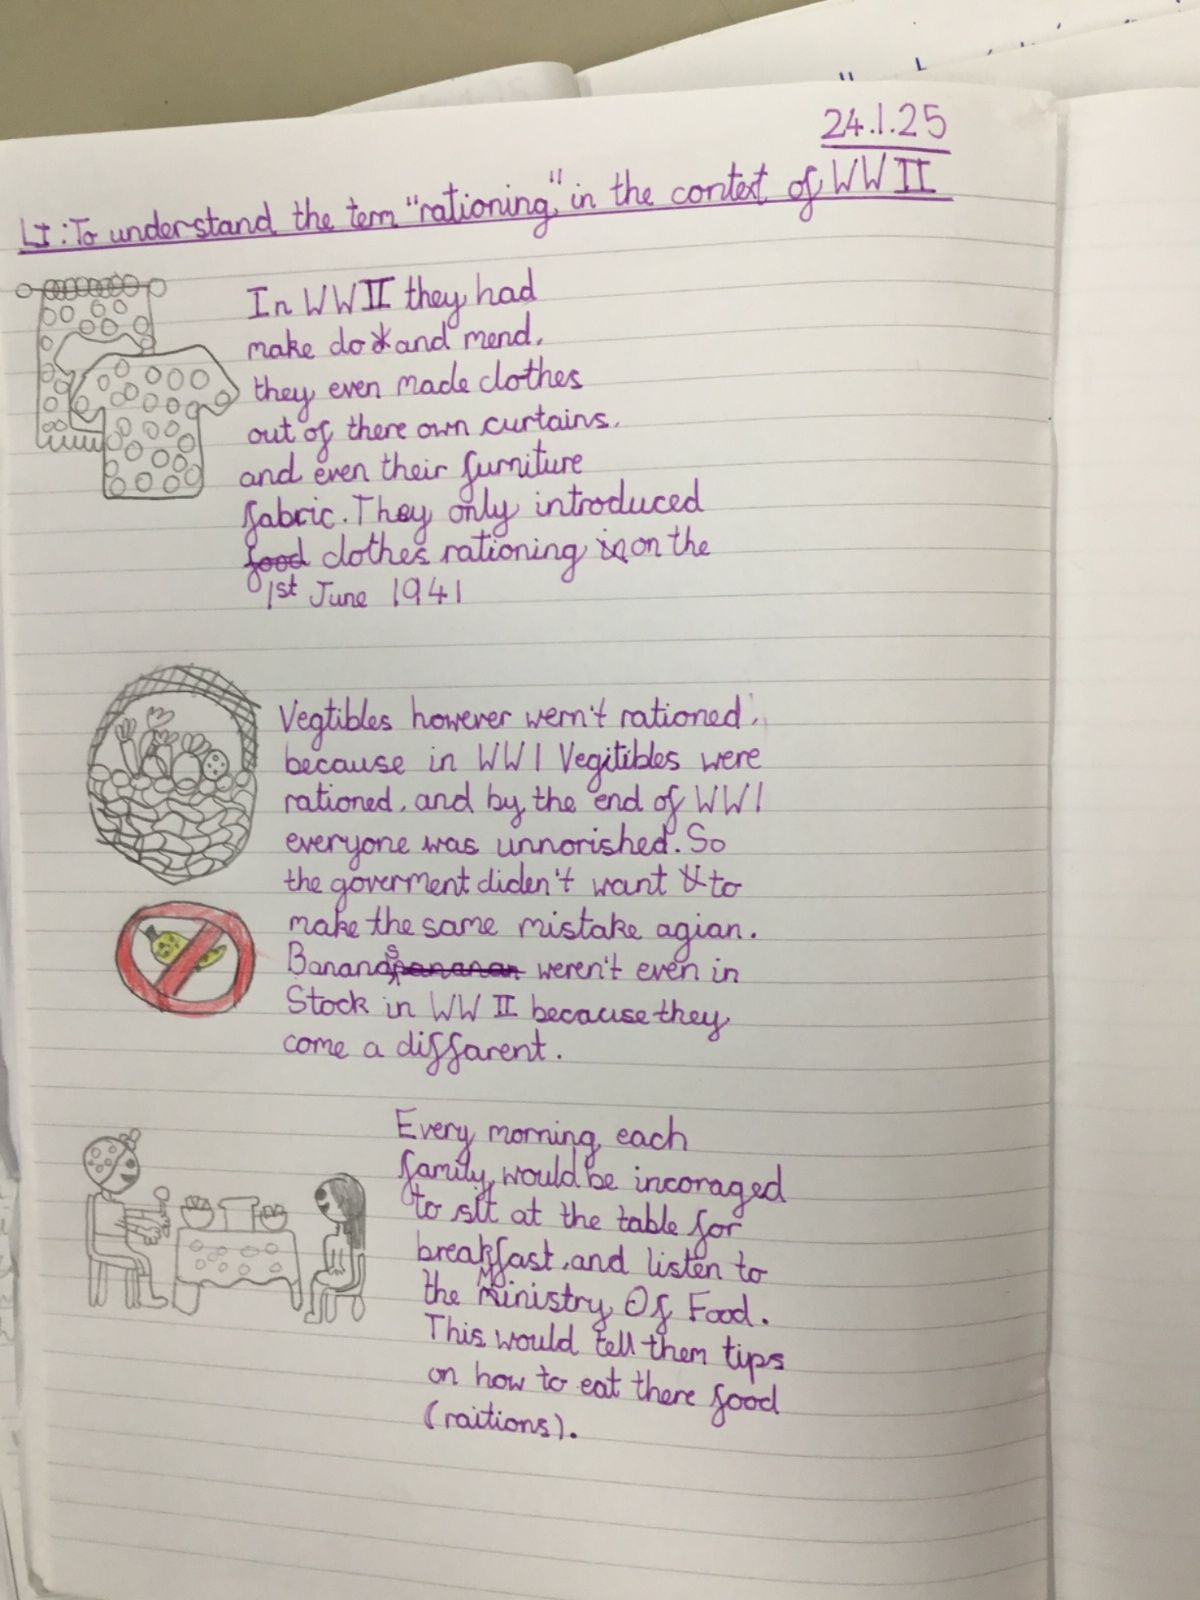 24.1.25
LI: To understand the term "rationing" in the context of WWII
In WWII they had
make do and mend.
they even made clothes
out of there own curtains.
and even their furniture
fabric. They only introduced
food clothes rationing in on the
1st June 1941
Vegtibles however wern't rationed,
because in WW1 Vegitibles were
rationed, and by the end of WW1
everyone was unnorished. So
the goverment diden't want to
make the same mistake agian.
Bananas bananar weren't even in
Stock in WWII because they
come a diffarent.
Every morning each
family would be incoraged
to sit at the table for
breakfast, and listen to
the Ministry Of Food.
This would tell them tips
on how to eat there food
(raitions).